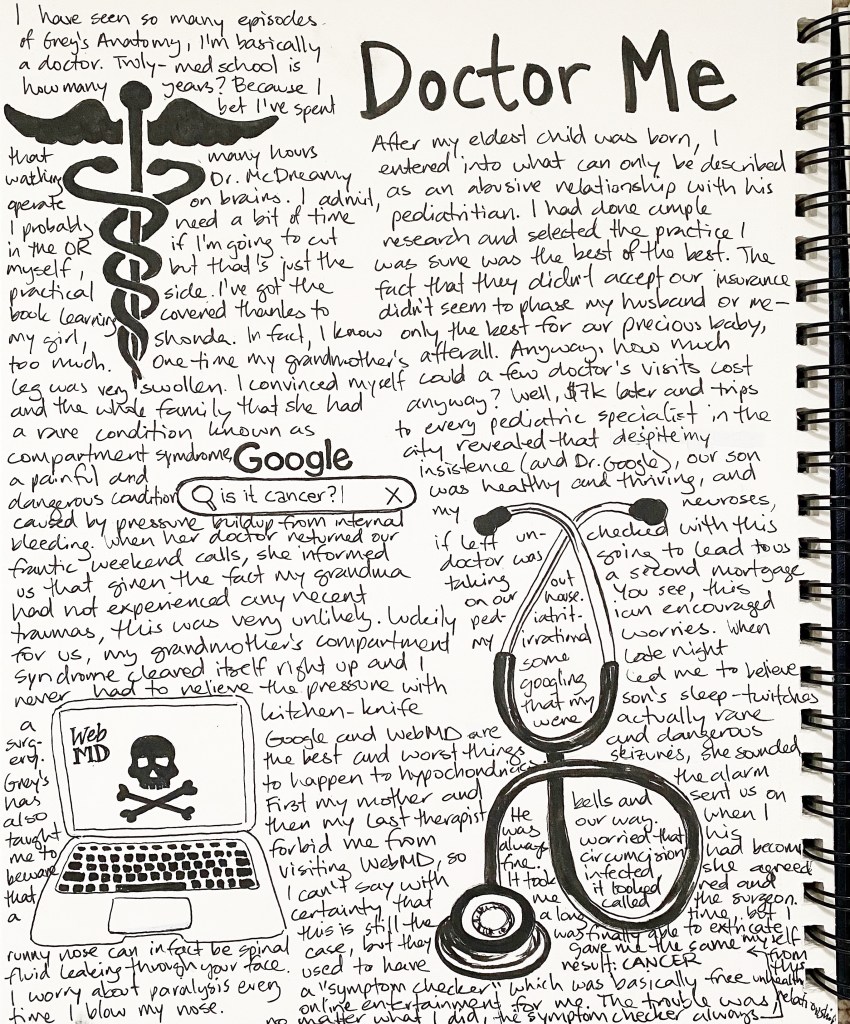 Doctor Me
I have seen so many episodes
of Grey's Anatomy, I'm basically
a doctor. Truly- med school is
how many years? Because I
bet I've spent
that many hours
watching Dr. McDreamy
operate on brains. I admit,
I probably need a bit of time
in the OR if I'm going to cut
myself, but that's just the
practical side. I've got the
book learning covered thanks to
my girl, Shonda. In fact, I know
too much. One time my grandmother's
leg was very swollen. I convinced myself
and the whole family that she had
a rare condition known as
compartment syndrome,
a painful and
dangerous condition
caused by pressure buildup from internal
bleeding. When her doctor returned our
frantic weekend calls, she informed
us that given the fact my grandma
had not experienced any recent
traumas, this was very unlikely. Luckily
for us, my grandmother's compartment
syndrome cleared itself right up and I
never had to relieve the pressure with
a kitchen-knife
surg-
ery.
Grey's
has
also
taught
me to
beware
that
a
runny nose can in fact be spinal
fluid leaking through your face.
I worry about paralysis every
time I blow my nose.
Google
is it cancer?|
X
Web
MD
Google and WebMD are
the best and worst things
to happen to hypochondriacs.
First my mother and
then my last therapist
forbid me from
visiting WebMD, so
I can't say with
certainty that
this is still the
case, but they
used to have
a "symptom checker" which was basically free
online entertainment for me. The trouble was,
no matter what I did, the symptom checker always
gave me the same
result: CANCER
After my eldest child was born, I
entered into what can only be described
as an abusive relationship with his
pediatritian. I had done ample
research and selected the practice I
was sure was the best of the best. The
fact that they didn't accept our insurance
didn't seem to phase my husband or me-
only the best for our precious baby,
afterall. Anyway, how much
could a few doctor's visits cost
anyway? Well, $7k later and trips
to every pediatric specialist in the
city revealed that despite my
insistence (and Dr. Google), our son
was healthy and thriving, and
my neuroses,
if left un- checked with this
doctor was going to lead to us
taking out a second mortgage
on our house. You see, this
ped- iatrit- ican encouraged
my irrational worries. When
some late night
googling led me to believe
that my son's sleep-twitches
were actually rare
and dangerous
seizures, she sounded
the alarm
bells and sent us on
our way. when I
worried that his
circumcision had become
infected she agreed
it looked red and
called the surgeon.
He
was
always
fine.
It took
me
a long time, but I
was finally able to extricate
myself
from
this
unhealthy
relationship